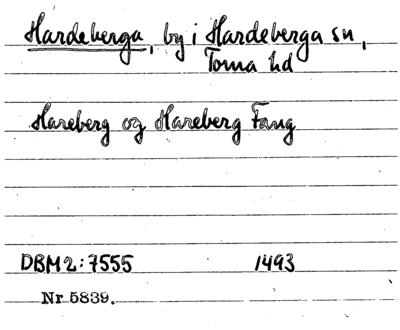 Hardeberga, by i Hardeberga sn,
Torna hd
Hareberg og Hareberg Fang
DBM2:7555 1493
Nr 5839.